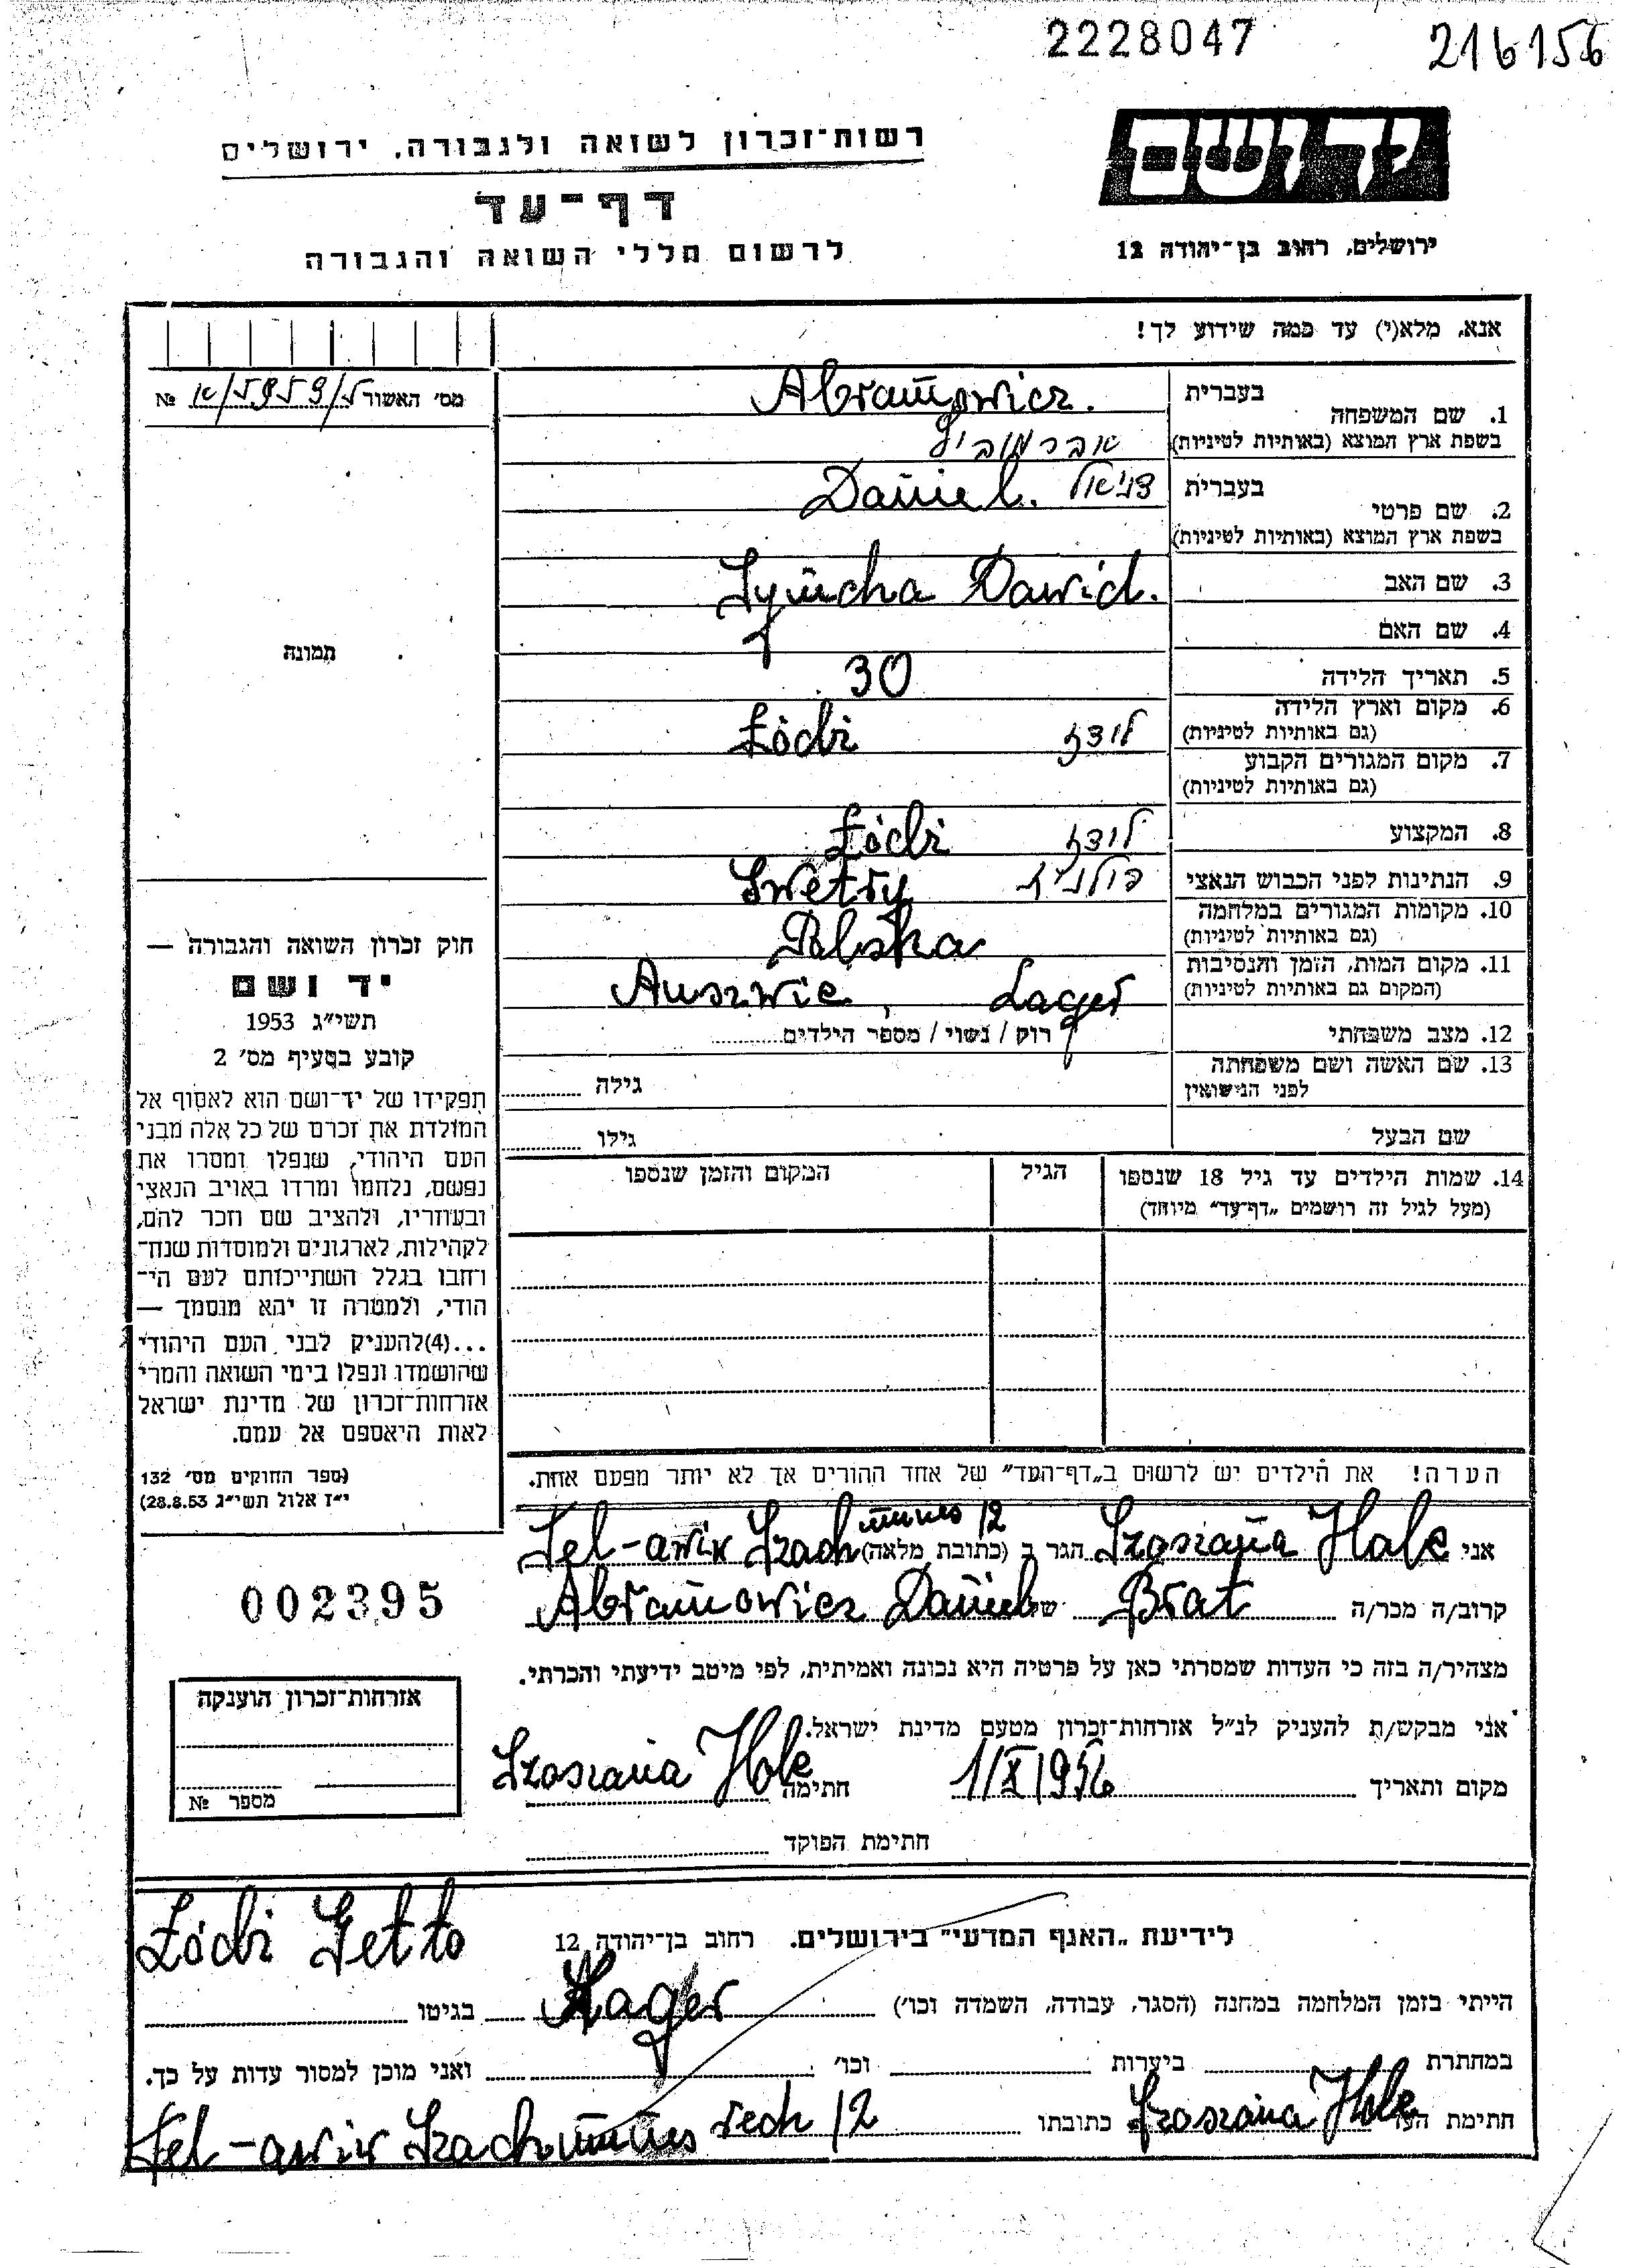 2228047
216156
יד ושם
ירושלים, רחוב בן־יהודה 12
רשות־זכרון לשואה ולגבורה, ירושלים
דף־עד
לרשום חללי השואה והגבורה
אנא, מלא(י) עד כמה שידוע לך!
מס׳ האשור №
1. שם המשפחה
בעברית
Abramowicz.
בשפת ארץ המוצא (באותיות לטיניות)
אברמוביץ
2. שם פרטי
בעברית
דניאל Daniel.
בשפת ארץ המוצא (באותיות לטיניות)
3. שם האב
Symcha Dawid.
4. שם האם
5. תאריך הלידה
30
6. מקום וארץ הלידה
(גם באותיות לטיניות)
לודז Łódź
7. מקום המגורים הקבוע
(גם באותיות לטיניות)
8. המקצוע
לודז Łódź
9. הנתינות לפני הכבוש הנאצי
Swetry
10. מקומות המגורים במלחמה
(גם באותיות לטיניות)
Polska
11. מקום המות, הזמן והנסיבות
(המקום גם באותיות לטיניות)
Auszwic, Lager
12. מצב משפחתי
רווק / נשוי / מספר הילדים
13. שם האשה ושם משפחתה
לפני הנישואין
גילה
שם הבעל
גילו
14. שמות הילדים עד גיל 18 שנספו
(מעל לגיל זה רושמים „דף־עד״ מיוחד)
הגיל
המקום והזמן שנספו
תמונה
חוק זכרון השואה והגבורה —
יד ושם
תשי״ג 1953
קובע בסעיף מס׳ 2
תפקידו של יד־ושם הוא לאסוף אל
המולדת את זכרם של כל אלה מבני
העם היהודי, שנפלו ומסרו את
נפשם, נלחמו ומרדו באויב הנאצי
ובעוזריו, ולהציב שם וזכר להם,
לקהילות, לארגונים ולמוסדות שנח־
רחבו בגלל השתייכותם לעם הי־
הודי, ולמטרה זו יהא מוסמך —
...(4)להעניק לבני העם היהודי
שהושמדו ונפלו בימי השואה והמרי
אזרחות־זכרון של מדינת ישראל
לאות היאספם אל עמם.
(ספר החוקים מס׳ 132
י״ז אלול תשי״ג 28.8.53)
הערה! את הילדים יש לרשום ב„דף־העד״ של אחד ההורים אך לא יותר מפעם אחת.
אני Szoszana Hale הגר ב (כתובת מלאה) Tel-awiw
12
קרוב/ה מכר/ה Brat של Abramowicz Daniel
מצהיר/ה בזה כי העדות שמסרתי כאן על פרטיה היא נכונה ואמיתית, לפי מיטב ידיעתי והכרתי.
אני מבקש/ת להעניק לנ״ל אזרחות־זכרון מטעם מדינת ישראל.
מקום ותאריך 1/X 1956 חתימה Szoszana Hale
חתימת הפוקד
002395
אזרחות־זכרון הוענקה
מספר №
לידיעת „האגף המדעי״ בירושלים. רחוב בן־יהודה 12
Łódź Getto
הייתי בזמן המלחמה במחנה (הסגר, עבודה, השמדה וכו׳) Lager בגיטו
במחתרת ביערות וכו׳ ואני מוכן למסור עדות על כך.
חתימת העד Szoszana Hale כתובתו
Tel-awiw 12